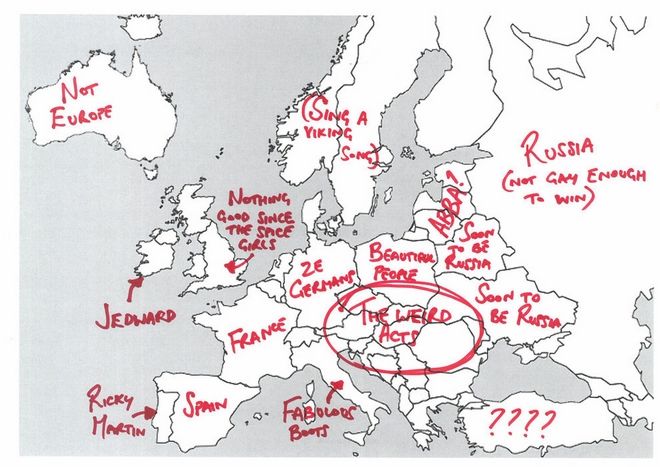 NOT
EUROPE
(SING A
VIKING
SONG)
RUSSIA
(NOT GAY ENOUGH
TO WIN)
NOTHING
GOOD SINCE
THE SPICE
GIRLS
ABBA?
SOON
TO BE
RUSSIA
BEAUTIFUL
PEOPLE
ZE
GERMANS
SOON TO
BE RUSSIA
JEDWARD
FRANCE
THE WEIRD
ACTS
RICKY
MARTIN
SPAIN
FABULOUS
BOOTS
????